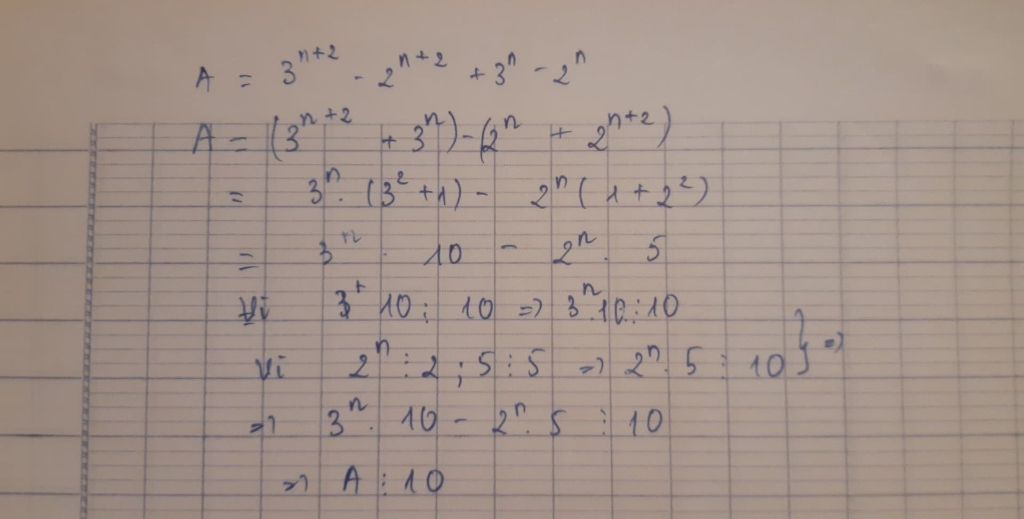 A = 3ⁿ⁺² - 2ⁿ⁺² + 3ⁿ - 2ⁿ
A = (3ⁿ⁺² + 3ⁿ) - (2ⁿ + 2ⁿ⁺²)
= 3ⁿ. (3² + 1) - 2ⁿ (1 + 2²)
= 3ⁿ . 10 - 2ⁿ. 5
Vì 10 ⋮ 10 => 3ⁿ.10 ⋮ 10
Vì 2ⁿ ⋮ 2 ; 5 ⋮ 5 => 2ⁿ. 5 ⋮ 10 } =>
=> 3ⁿ. 10 - 2ⁿ. 5 ⋮ 10
=> A ⋮ 10